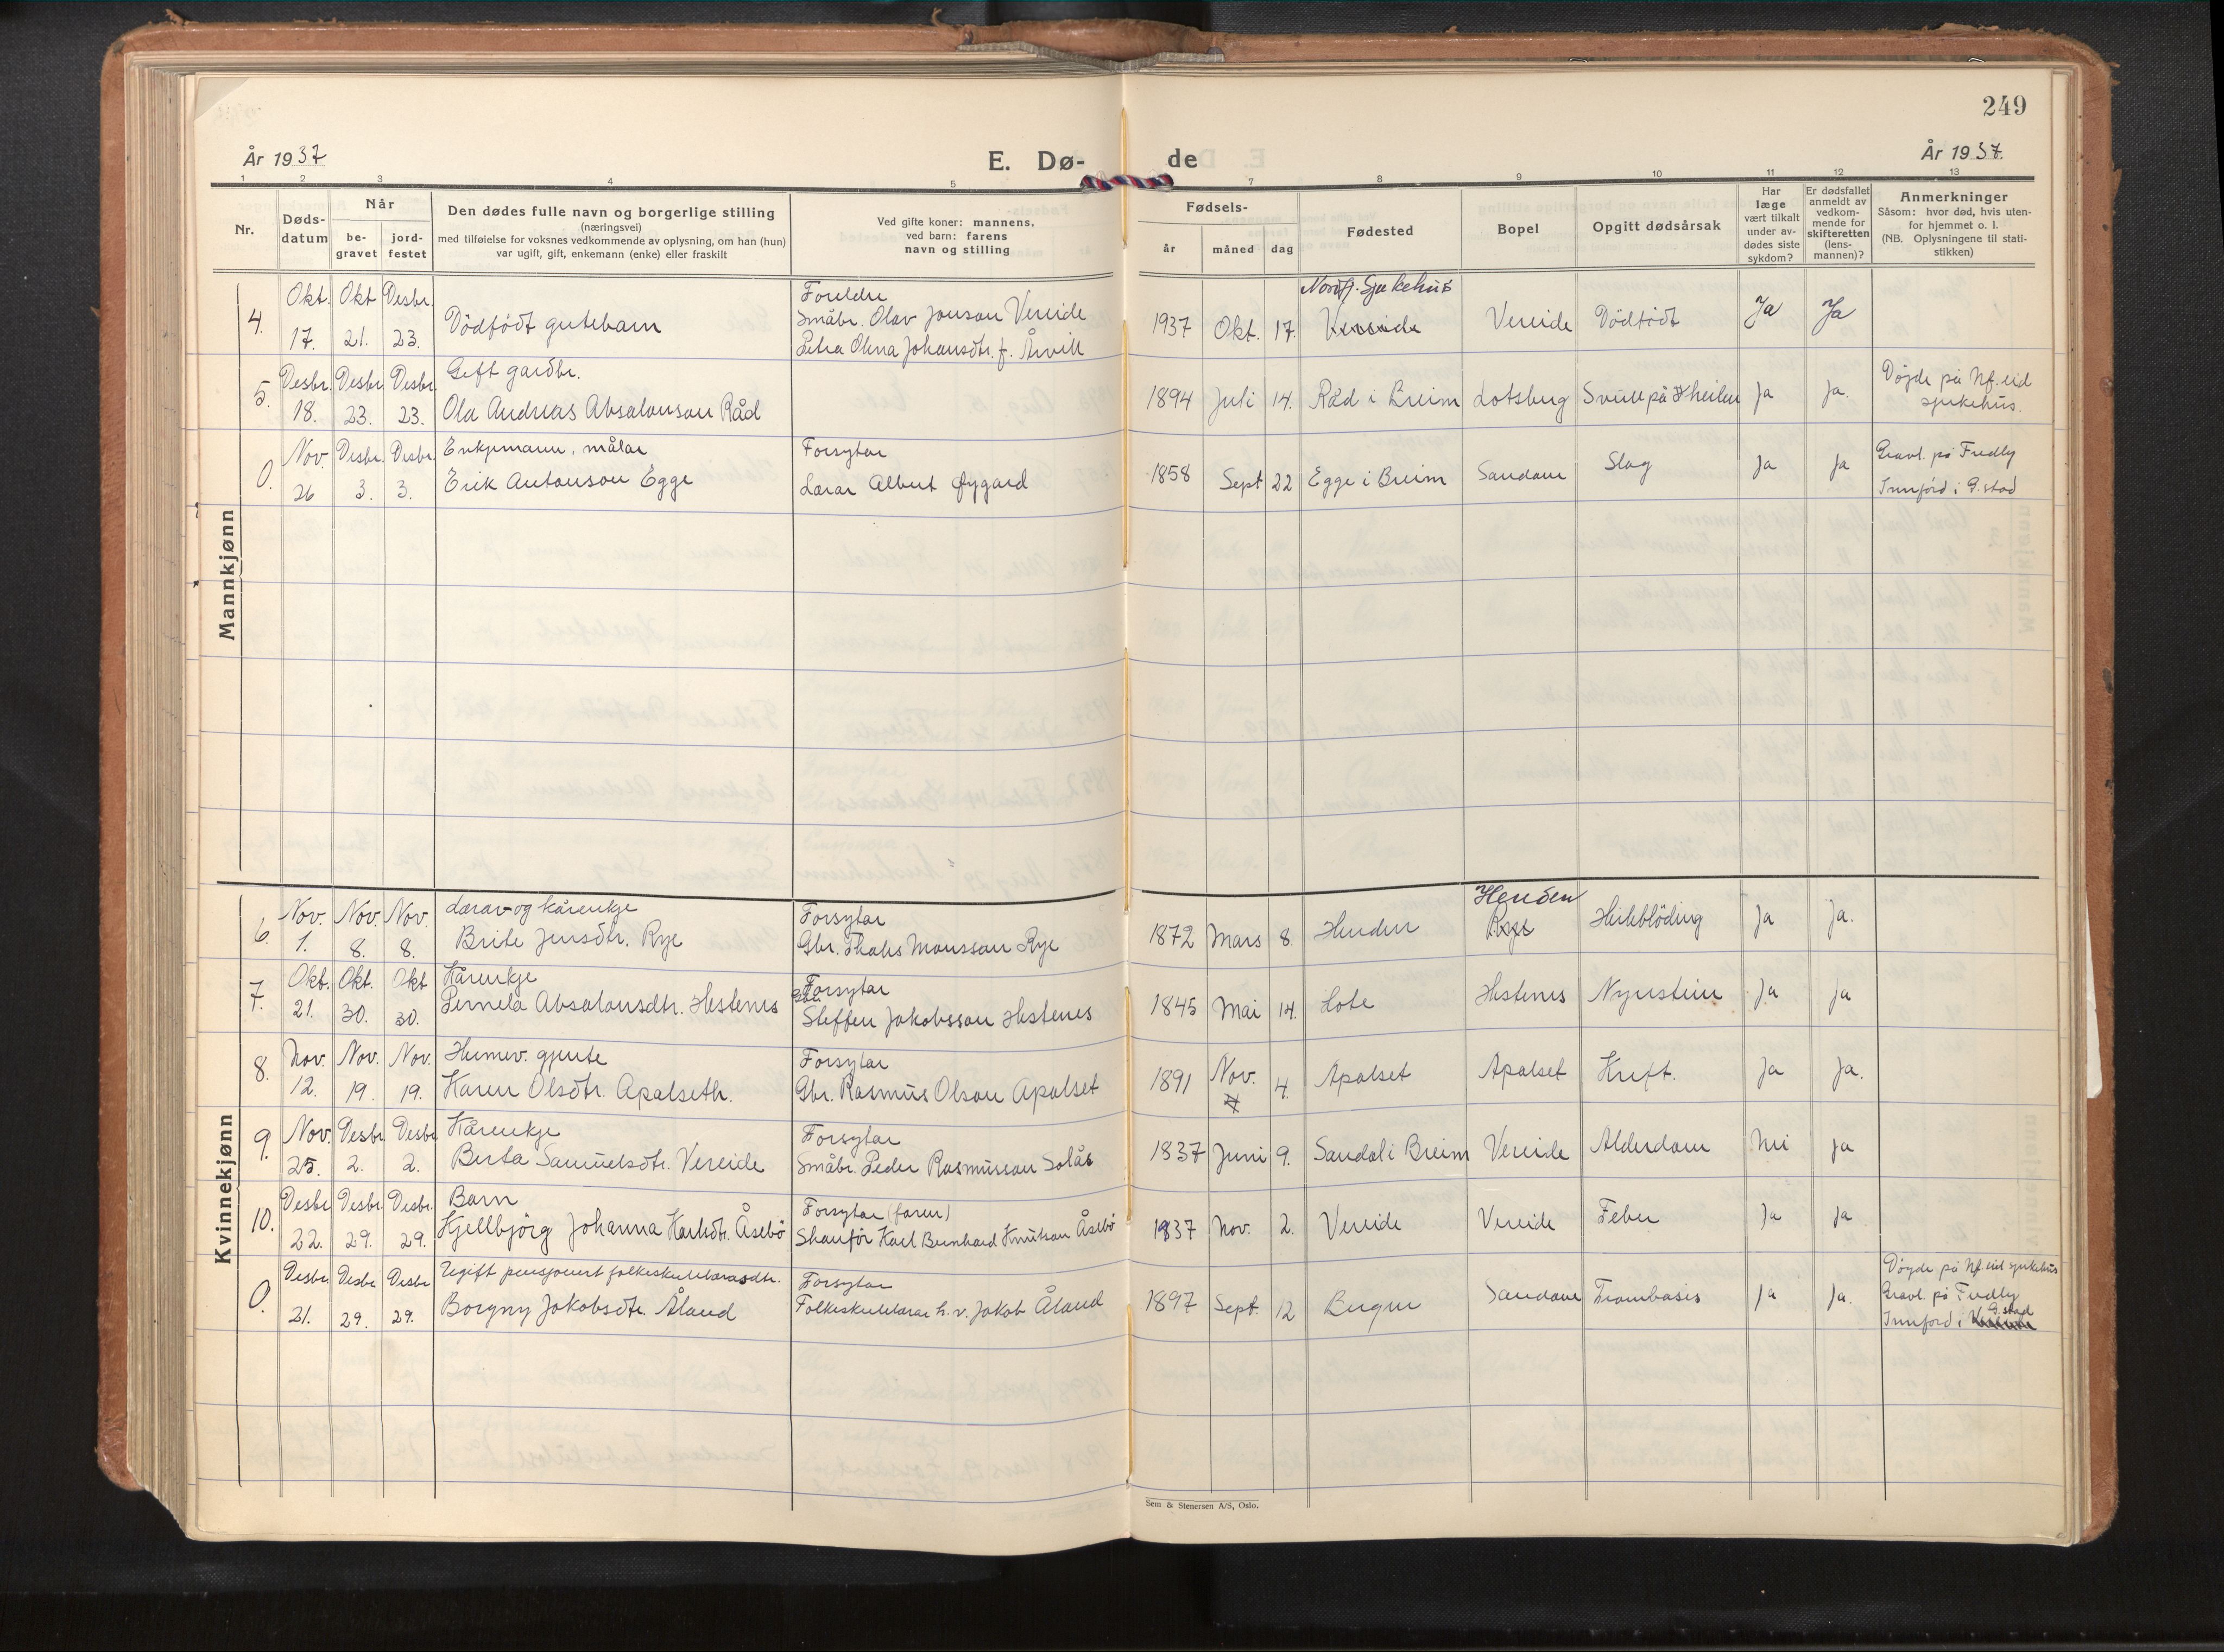 249
År 1937
E. Dø-
de
År 1937.
1 2 3 4 5 7 8 9 10 11 12 13
Nr.
Døds-
datum
Når
be-
gravet
jord-
festet
Den dødes fulle navn og borgerlige stilling
(næringsvei)
med tilføielse for voksnes vedkommende av oplysning, om han (hun)
var ugift, gift, enkemann (enke) eller fraskilt
Ved gifte koner: mannens,
ved barn: farens
navn og stilling
Fødsels-
år
måned
dag
Fødested
Bopel
Opgitt dødsårsak
Har
læge
vært tilkalt
under av-
dødes siste
sykdom?
Er dødsfallet
anmeldt av
vedkom-
mende for
skifteretten
(lens-
mannen)?
Anmerkninger
Såsom: hvor død, hvis uten-
for hjemmet o. l.
(NB. Oplysningene til stati-
stikken)
Mannkjønn
Okt. Okt Desbr. Foreldre Nordfj. Sjukehus
4. Dödfödt gutebarn Småbr. Olav Jonson Vereide 1937 Okt. 17. Vereide Vereide Dödfödt Ja Ja
17. 21. 23. Petra Olena Johansdtr. f. Årvik
Desbr. Desbr. Desbr. Gift gardbr. Döyde på Nf.eid
5. 18. 23. 23. Ola Andreas Absalonson Råd 1894 Juli 14. Råd i Breim Lotsberg Svull på heilen Ja Ja. sjukehus.
Nov. Desbr. Desbr. Enkjemann, målar Forsytar Gravl. på Fredly
0. 26 3. 3. Erik Antonson Egge Lærar Albert Øygard 1858 Sept 22 Egge i Breim Sandane Slag Ja Ja Innförd i G.stad
Kvinnekjønn
Nov. Nov. Nov. Lærar og kårenkje Forsytar Henden
6. 1. 8. 8. Brite Jensdtr. Rye Gbr. Thales Monsson Rye 1872 Mars 8. Henden Rye Heileblöding Ja Ja.
Okt. Okt. Okt Kårenkje Forsytar
7. 21. 30. 30. Pernela Absalonsdtr. Hestenes Gbr. Steffen Jakobsson Hestenes 1845 Mai 14. Lote Hestenes Nyrestein Ja Ja
Nov. Nov. Nov. Heimev. gjente Forsytar
8. 12. 19. 19. Karen Olsdtr. Apalseth. Gbr. Rasmus Olson Apalset 1891 Nov. 4. Apalset Apalset Kreft. Ja Ja.
Nov. Desbr. Desbr. Kårenkje Forsytar
9. 25. 2. 2. Berta Samuelsdtr. Vereide Småbr. Peder Rasmusson Solås 1837 Juni 9. Sandal i Breim Vereide Alderdom Nei Ja
Desbr. Desbr. Desbr. Barn Forsytar (faren)
10. 22. 29. 29. Kjellbjörg Johanna Karlsdtr. Åsebö Skauför Karl Bernhard Knutson Åsebö 1937 Nov. 2. Vereide Vereide Feber Ja Ja
Desbr. Desbr. Desbr Ugift pensjonert folkeskulelærardtr. Forsytar Döyde på Nf.eid sjukehus
0. 21. 29. 29. Borgny Jakobsdtr. Åland Folkeskulelærar h.v. Jakob Åland 1897 Sept. 12 Bergen Sandane Trombosis Ja Ja. Gravl. på Fredly
Innförd i G.stad
Sem & Stenersen A/S, Oslo.